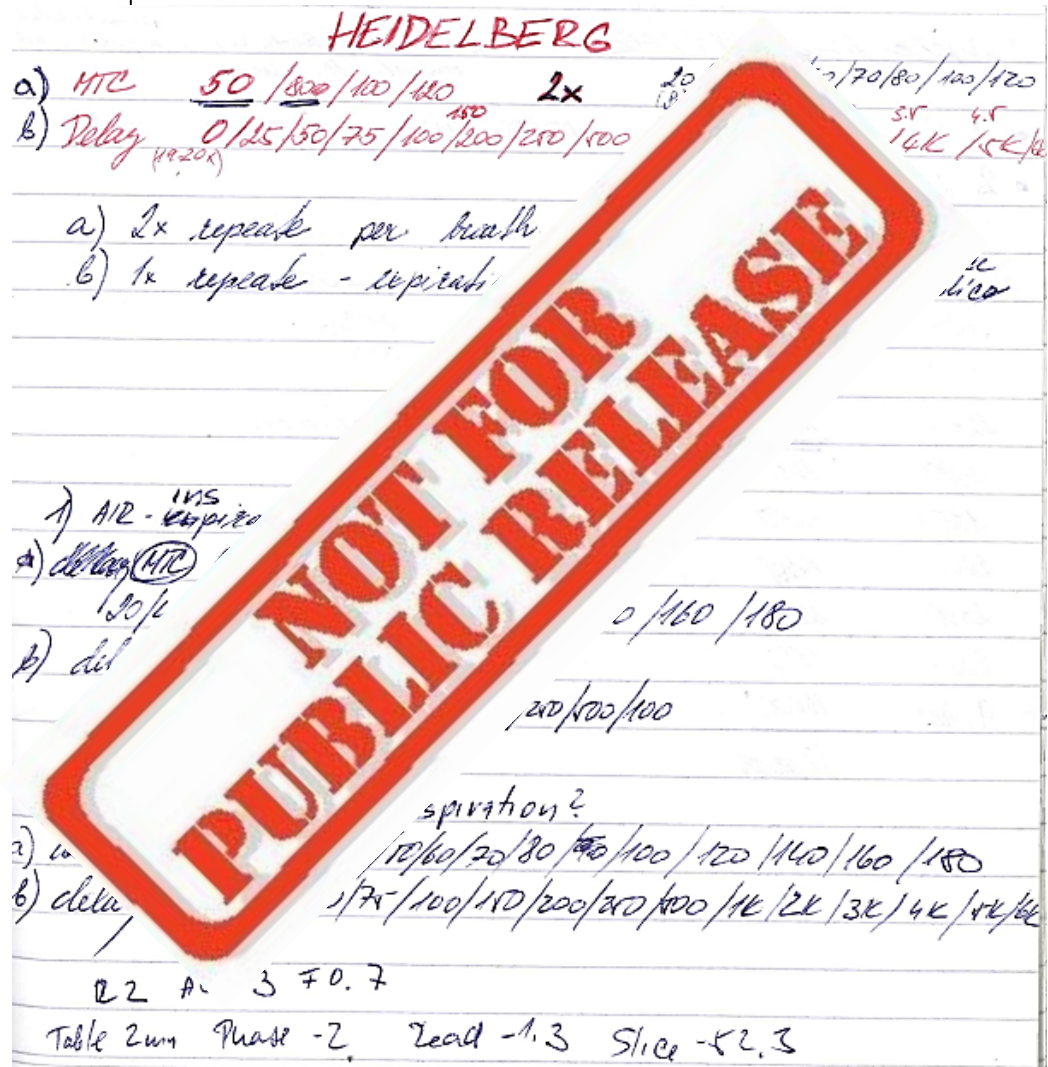 HEIDELBERG
a) MTC 50/800/100/120 2x 20 /70/80/100/120
150 3.5 4.5
b) Delay 0/25/50/75/100/200/250/500 /4K /5K/6K
(19-20x)
a) 2x repeate per breath
b) 1x repeate - expirati
NOT FOR
PUBLIC RELEASE
ins
1) AIR -
a) MTC
20/ 0/160/180
b) del
/250/500/100
spiration?
a) /50/60/70/80/ /100/120/140/160/180
b) dela /75/100/150/200/250/500/1K/2K/3K/4K/5K/6K
3 ∓0.7
Table 2mm Phase -2 Read -1.3 Slice -52.3